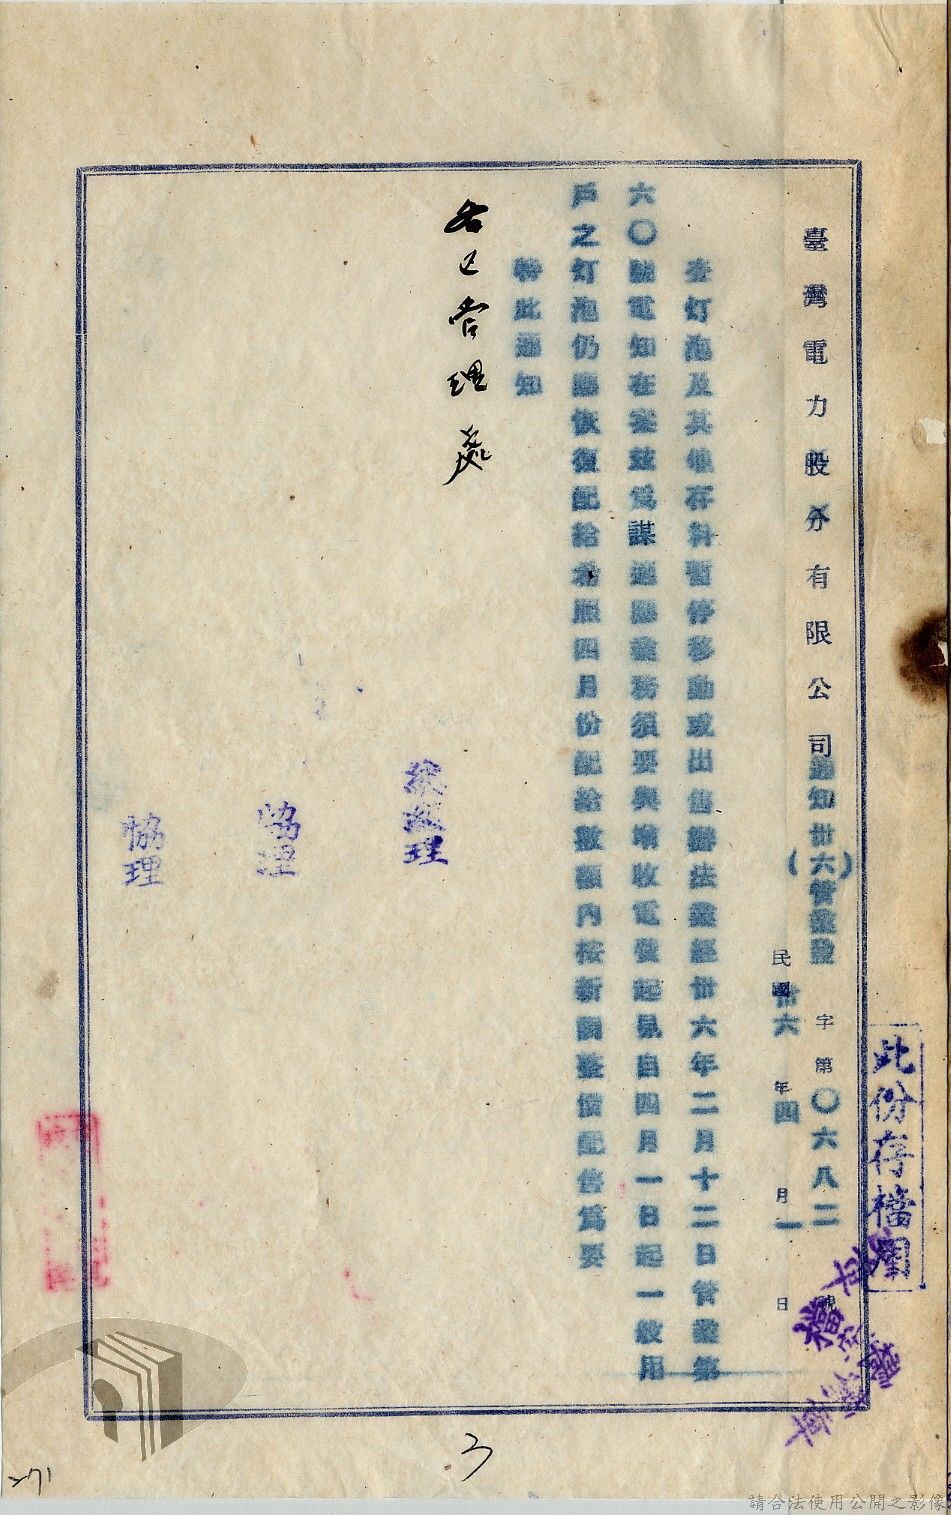 臺灣電力股份有限公司通知
(卅六)管業發字第〇六八二號
民國卅六年四月一日
查灯泡及其他存料暫停移動或出售辦法業經卅六年二月十二日管業第
六〇號電知在案茲為謀適應業務須要與增收電費起見自四月一日起一般用
戶之灯泡仍應恢復配給希照四月份配給數額內按新調整價配售為要
特此通知
各區管理處
總經理
協理
協理
此份存檔用
3
271
請合法使用公開之影像